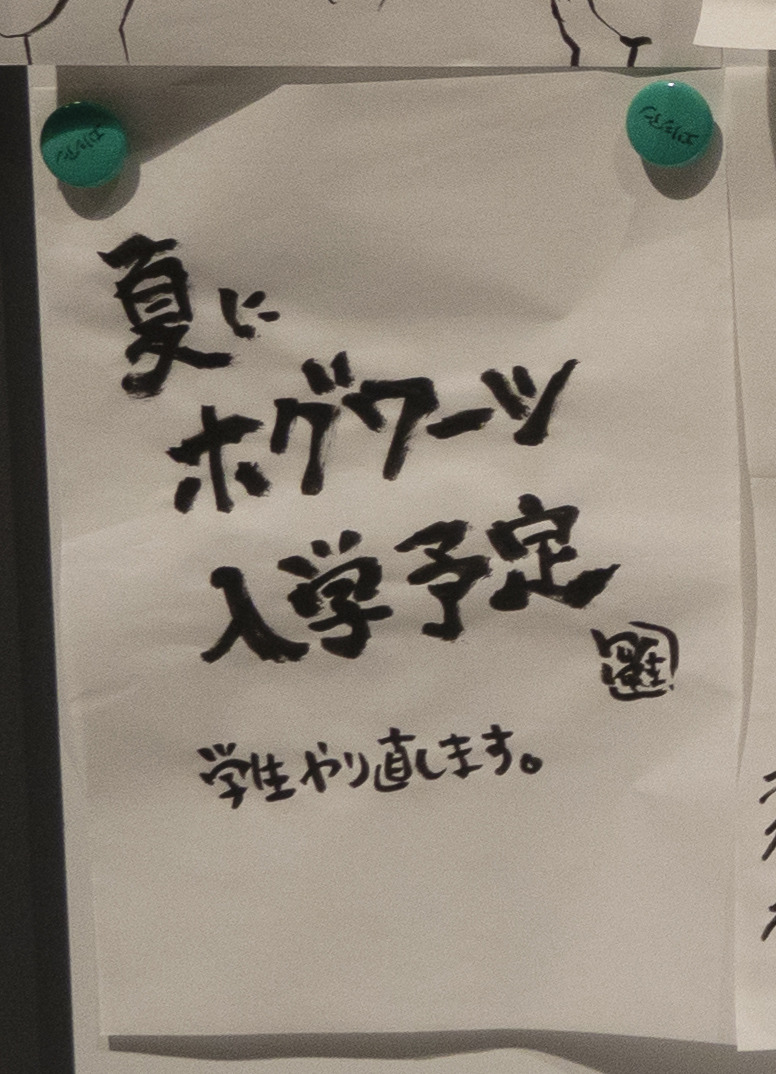 夏に
ホグワーツ
入学予定
学生やり直します。